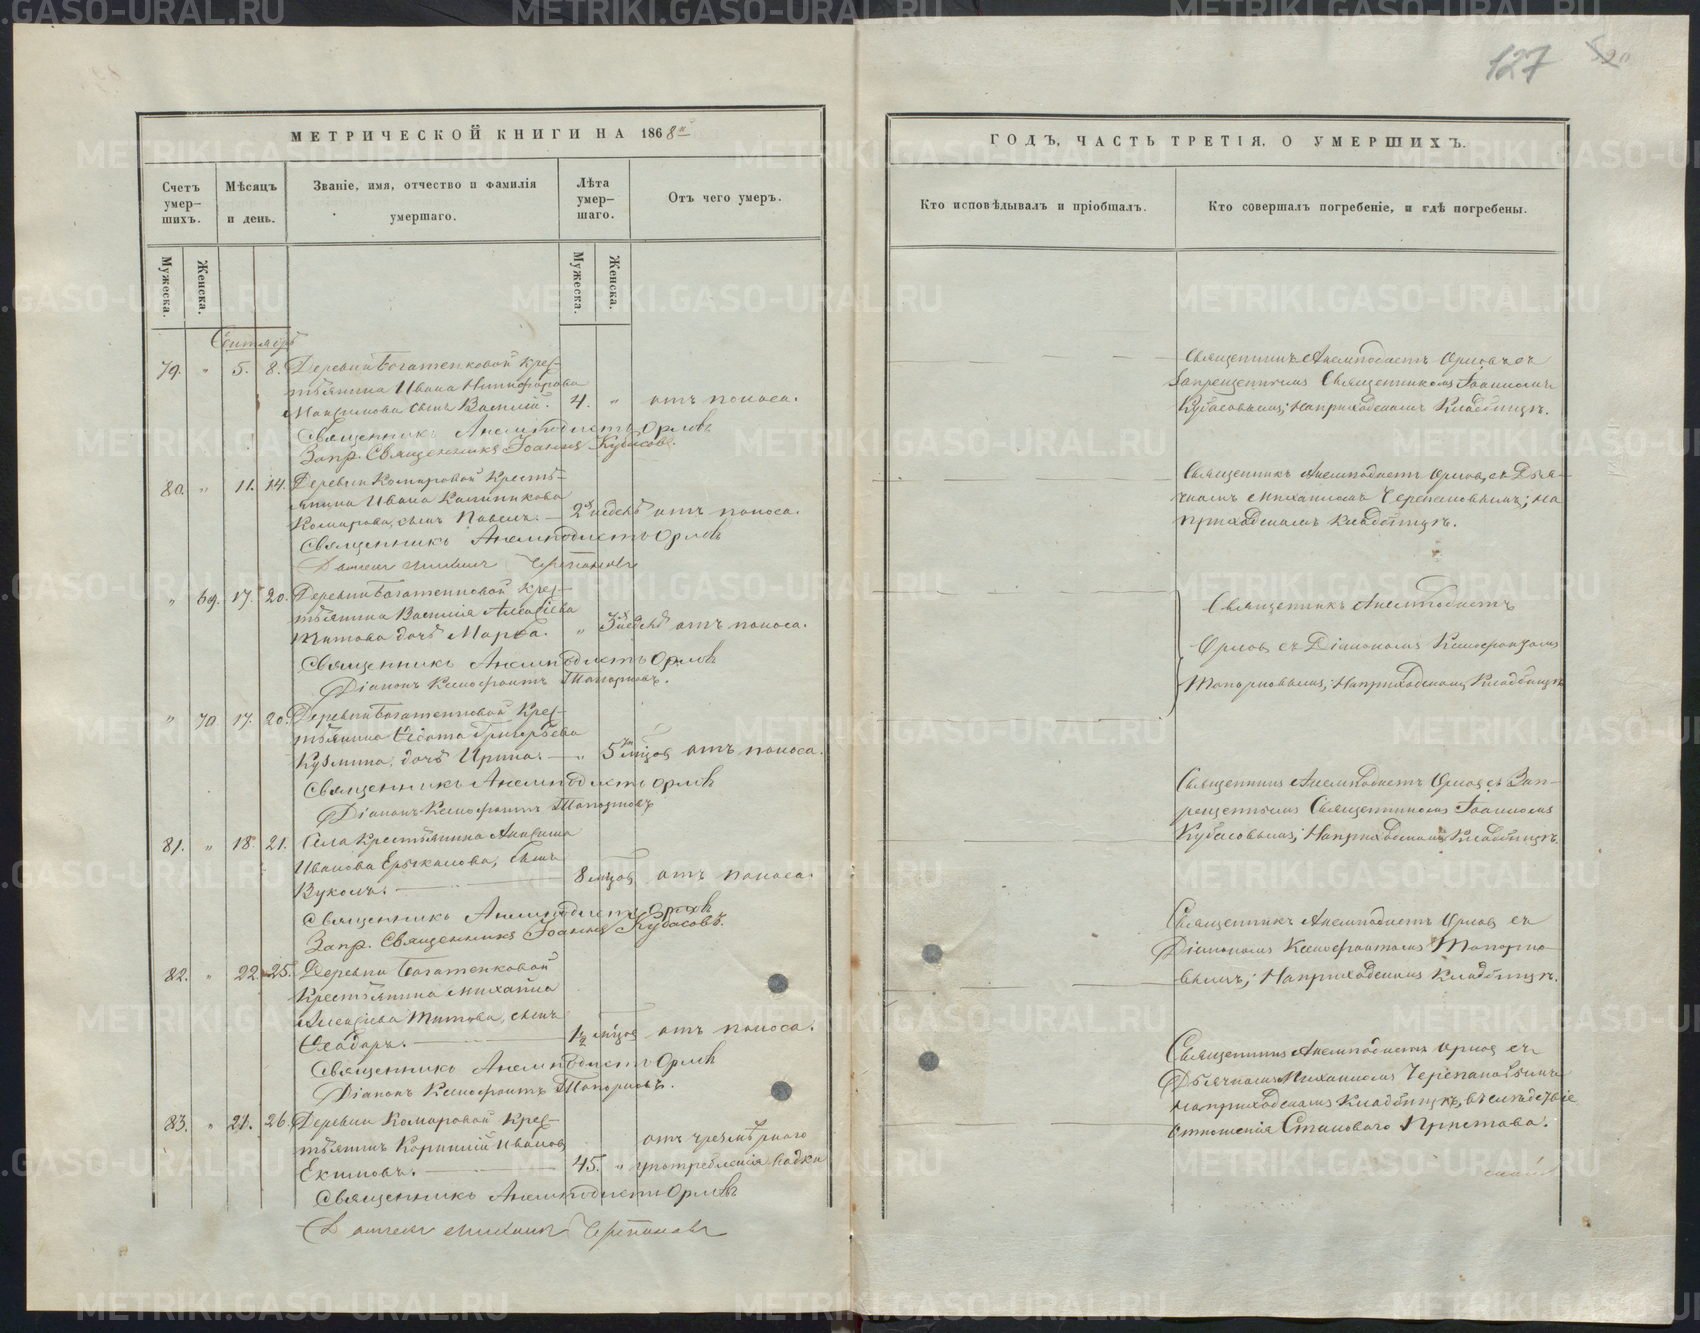 127
МЕТРИЧЕСКОЙ КНИГИ НА 1868й
Счетъ умер-шихъ.
Мѣсяцъ и день.
Званіе, имя, отчество и фамилія умершаго.
Лѣта умер-шаго.
Отъ чего умеръ.
Мужеска.
Женска.
Мужеска.
Женска.
Сентябрь
79. " 5. 8. Деревни Богатенковой крес-
тьянина Ивана Никифорова
Максимова сынъ Василій. 4. " отъ поноса.
Священникъ Анемподистъ Орловъ
Запр. Священникъ Іоаннъ Кубасовъ.
80 " 11. 14. Деревни Комаровой Кресть-
янина Ивана Калиникова
Комарова, сынъ Павелъ. — 2 недѣль отъ поноса.
Священникъ Анемподистъ Орловъ
Дьячекъ Михаилъ Черепановъ
" 69. 17. 20. Деревни Богатенковой Крес-
тьянина Василія Алексѣева
Титова дочь Марѳа. " 3 недѣль отъ поноса.
Священникъ Анемподистъ Орловъ
Діаконъ Ксенофонтъ Топорковъ.
" 70 17. 20. Деревни Богатенковой Крес-
тьянина Ѳедота Григорьева
Кузмина, дочь Ирина. — " 5 мѣсяцовъ отъ поноса.
Священникъ Анемподистъ Орловъ
Діаконъ Ксенофонтъ Топорковъ
81. " 18 21. Села Крестьянина
Иванова Ерыкалова, сынъ
Вуколъ. — 8 мѣсяцовъ отъ поноса.
Священникъ Анемподистъ Орловъ
Запр. Священникъ Іоаннъ Кубасовъ.
82. " 22. 25. Деревни Богатенковой
Крестьянина Михаила
Алексѣева Титова, сынъ
Ѳеодоръ. — 1½ мѣсяцовъ отъ поноса.
Священникъ Анемподистъ Орловъ
Діаконъ Ксенофонтъ Топорковъ.
83. " 21. 26. Деревни Комаровой Крес-
тьянинъ Корнилій Ивановъ
Екимовъ. — 45. " отъ чрезмѣрнаго
употребленія водки
Священникъ Анемподистъ Орловъ
Дьячекъ Михаилъ Черепановъ
ГОДЪ, ЧАСТЬ ТРЕТІЯ, О УМЕРШИХЪ.
Кто исповѣдывалъ и пріобщалъ.
Кто совершалъ погребеніе, и гдѣ погребены.
Священникъ Анемподистъ Орловъ съ
Запрещеннымъ Священникомъ Іоанномъ
Кубасовымъ; На приходскомъ Кладбищѣ.
Священникъ Анемподистъ Орловъ, съ Дья-
чкомъ Михаиломъ Черепановымъ; на
приходскомъ кладбищѣ.
Священникъ Анемподистъ
Орловъ съ Діакономъ Ксенофонтомъ
Топорковымъ; На приходскомъ Кладбищѣ
Священникъ Анемподистъ Орловъ съ Зап-
рещеннымъ Священникомъ Іоанномъ
Кубасовымъ; На приходскомъ Кладбищѣ.
Священникъ Анемподистъ Орловъ съ
Діакономъ Ксенофонтомъ Топорко-
вымъ; На приходскомъ Кладбищѣ.
Священникъ Анемподистъ Орловъ съ
Дьячкомъ Михаиломъ Черепановымъ
на приходскомъ Кладбищѣ, вслѣдствіе
отношенія Становаго Пристава.